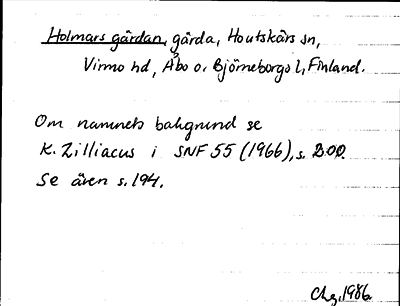 Holmars gärdan, gärda, Houtskärs sn,
Virmo hd, Åbo o. Björneborgs l, Finland.
Om namnets bakgrund se
K. Zilliacus i SNF 55 (1966), s. 200.
Se även s. 194.
1986